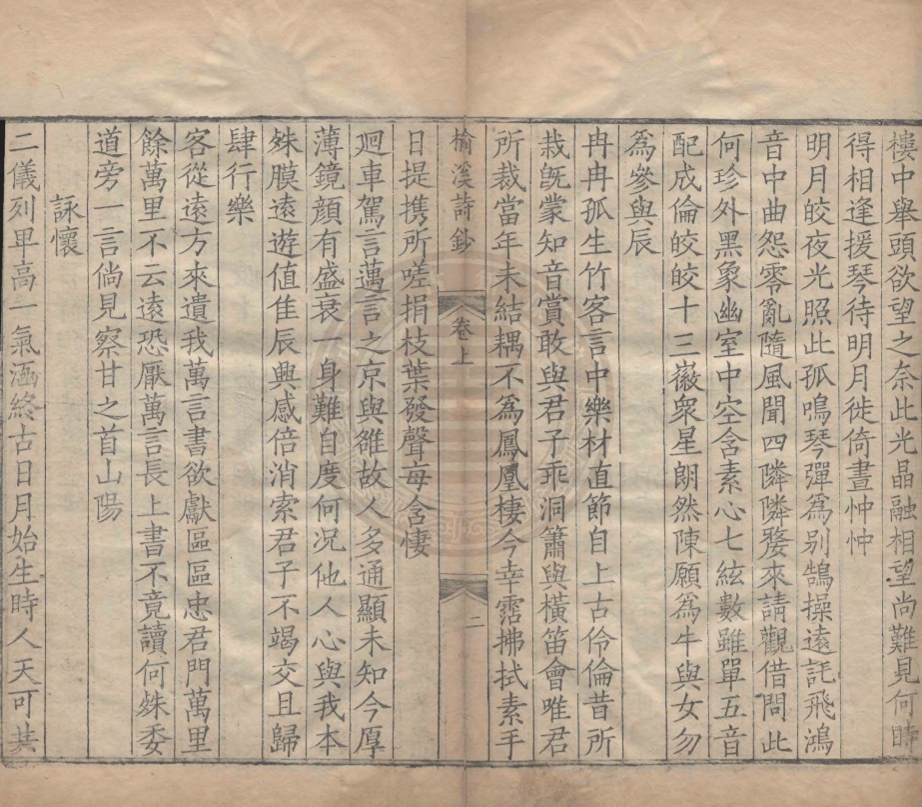 樓中舉頭欲望之奈此光晶融相望尚難見何時
得相逢援琴待明月徙倚晝忡忡
明月皎夜光照此孤鳴琴彈爲别鵠操遠託飛鴻
音中曲怨零亂隨風聞四隣隣嫠來請觀借問此
何珍外黑象幽室中空含素心七絃數雖單五音
配成倫皎皎十三徽衆星朗然陳願爲牛與女勿
爲參與辰
冉冉孤生竹客言中樂材直節自上古伶倫昔所
栽旣蒙知音賞敢與君子乖洞簫與橫笛會唯君
所裁當年未結耦不爲鳳凰棲今幸霑拂拭素手
榆溪詩鈔 卷上 二
日提携所嗟捐枝葉發聲每含悽
廻車駕言邁言之京與雒故人多通顯未知今厚
薄鏡顔有盛衰一身難自度何況他人心與我本
殊膜遠遊值佳辰興感倍消索君子不竭交且歸
肆行樂
客從遠方來遺我萬言書欲獻區區忠君門萬里
餘萬里不云遠恐厭萬言長上書不竟讀何殊委
道旁一言倘見察甘之首山陽
詠懷
二儀列卑高一氣涵終古日月始生時人天可共